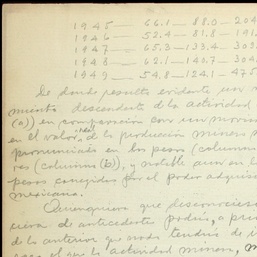 1945 — 66.1 — 88.0 — 204
1946 — 52.4 — 81.8 — 191
1947 — 65.3 — 133.4 — 309
1948 — 62.1 — 143.7 — 304
1949 — 54.8 — 124.1 — 475
De donde resulta evidente un
miento descendente de la actividad
(a)) en comparación con un movim
en el valor de la producción minera
pronunciado en los pesos (column
res (columna (b)), y notable aun en lo
pesos corregidos por el poder adquis
mexicano.
Quienquiera que desconocies
ciera de antecedentes podría, a pri
de lo anterior que nada tendría de i